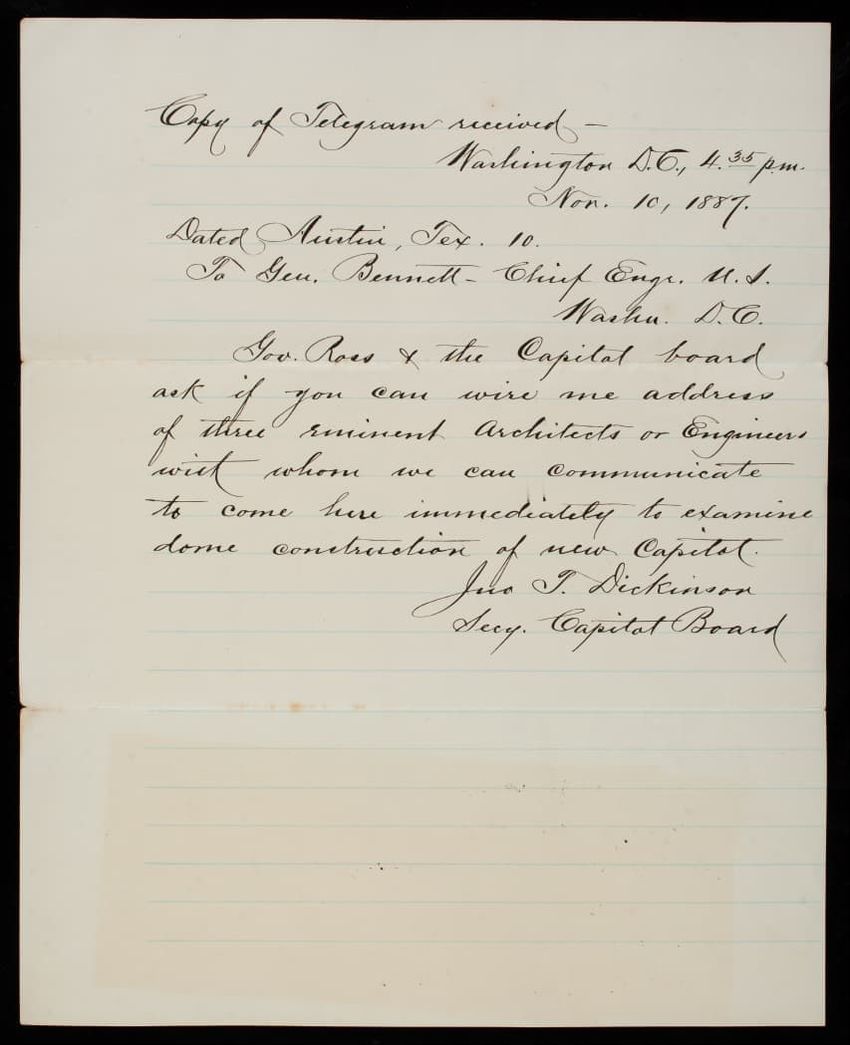 Copy of Telegram received –
Washington D.C., 4.35 p.m.
Nov. 10, 1887.
Dated Austin, Tex. 10.
To Gen. Bennett – Chief Engr. U.S.
Washn. D.C.
Gov. Ross & the Capitol board
ask if you can wire me address
of three eminent Architects or Engineers
with whom we can communicate
to come here immediately to examine
dome construction of new Capitol.
Jno T. Dickinson
Secy. Capitol Board